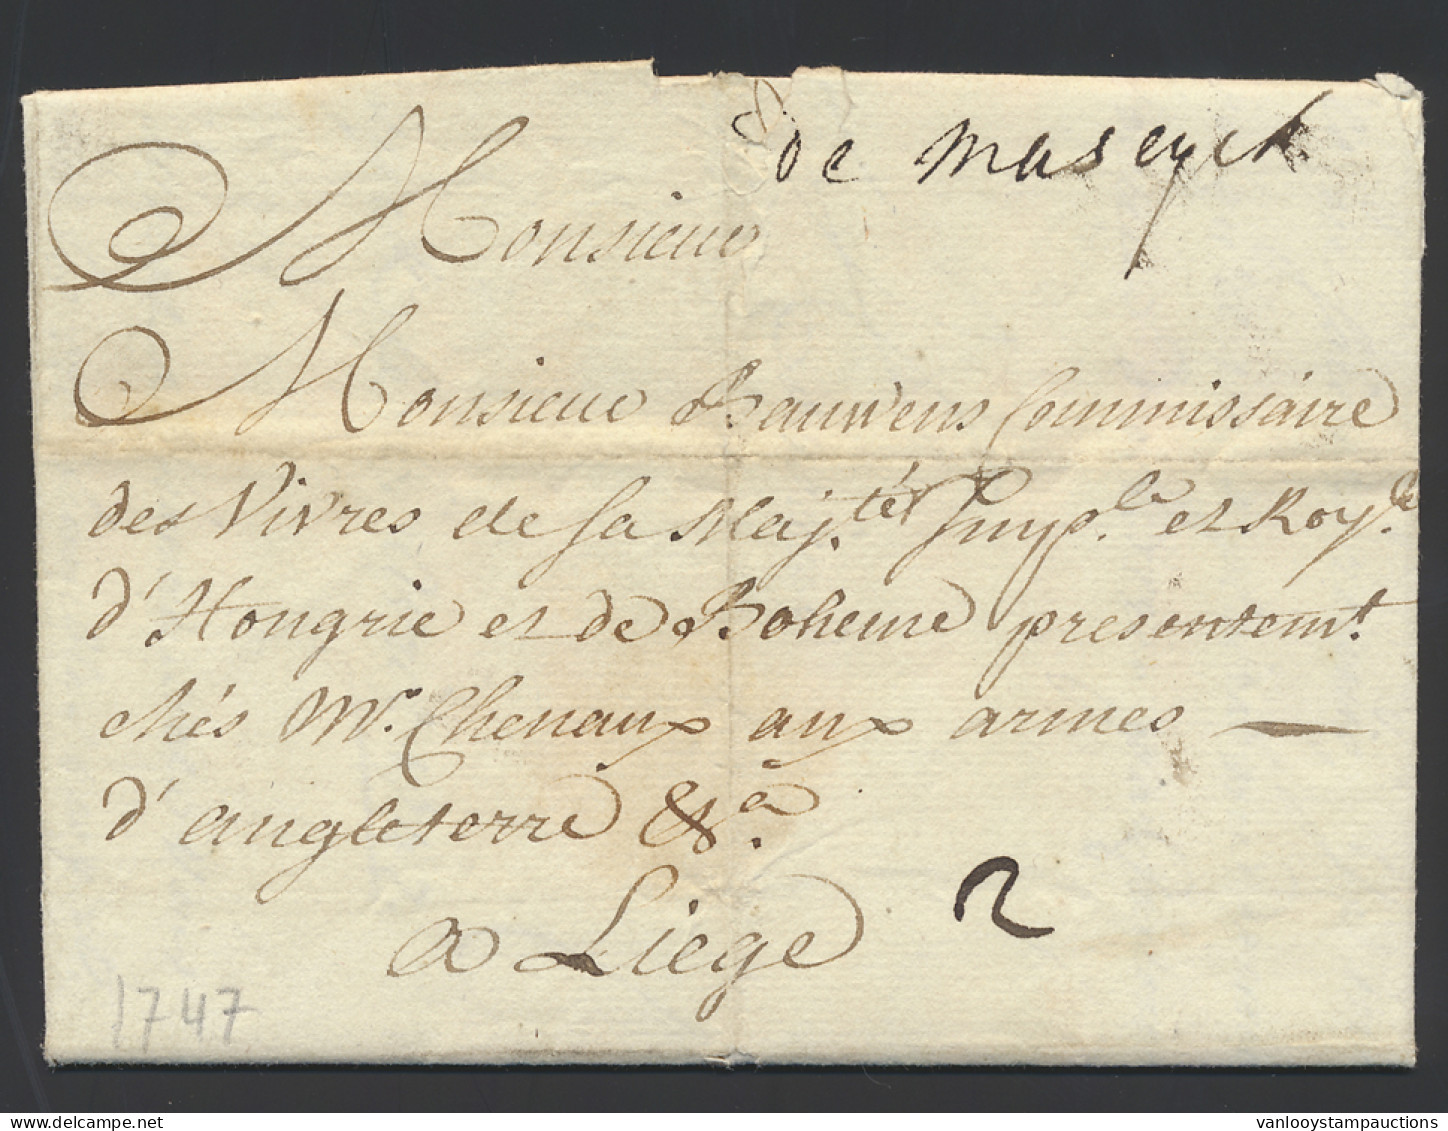 de Maseyck
Monsieur
Monsieur Bauwens Commissaire
des Vivres de sa Maj.tér Imp.le et Roy.le
d'Hongrie et de Boheme presentem.t
chés Mr. Chenaux aux armes —
d'angleterre &.a
a Liege
2
1747
vanlooystampauctions